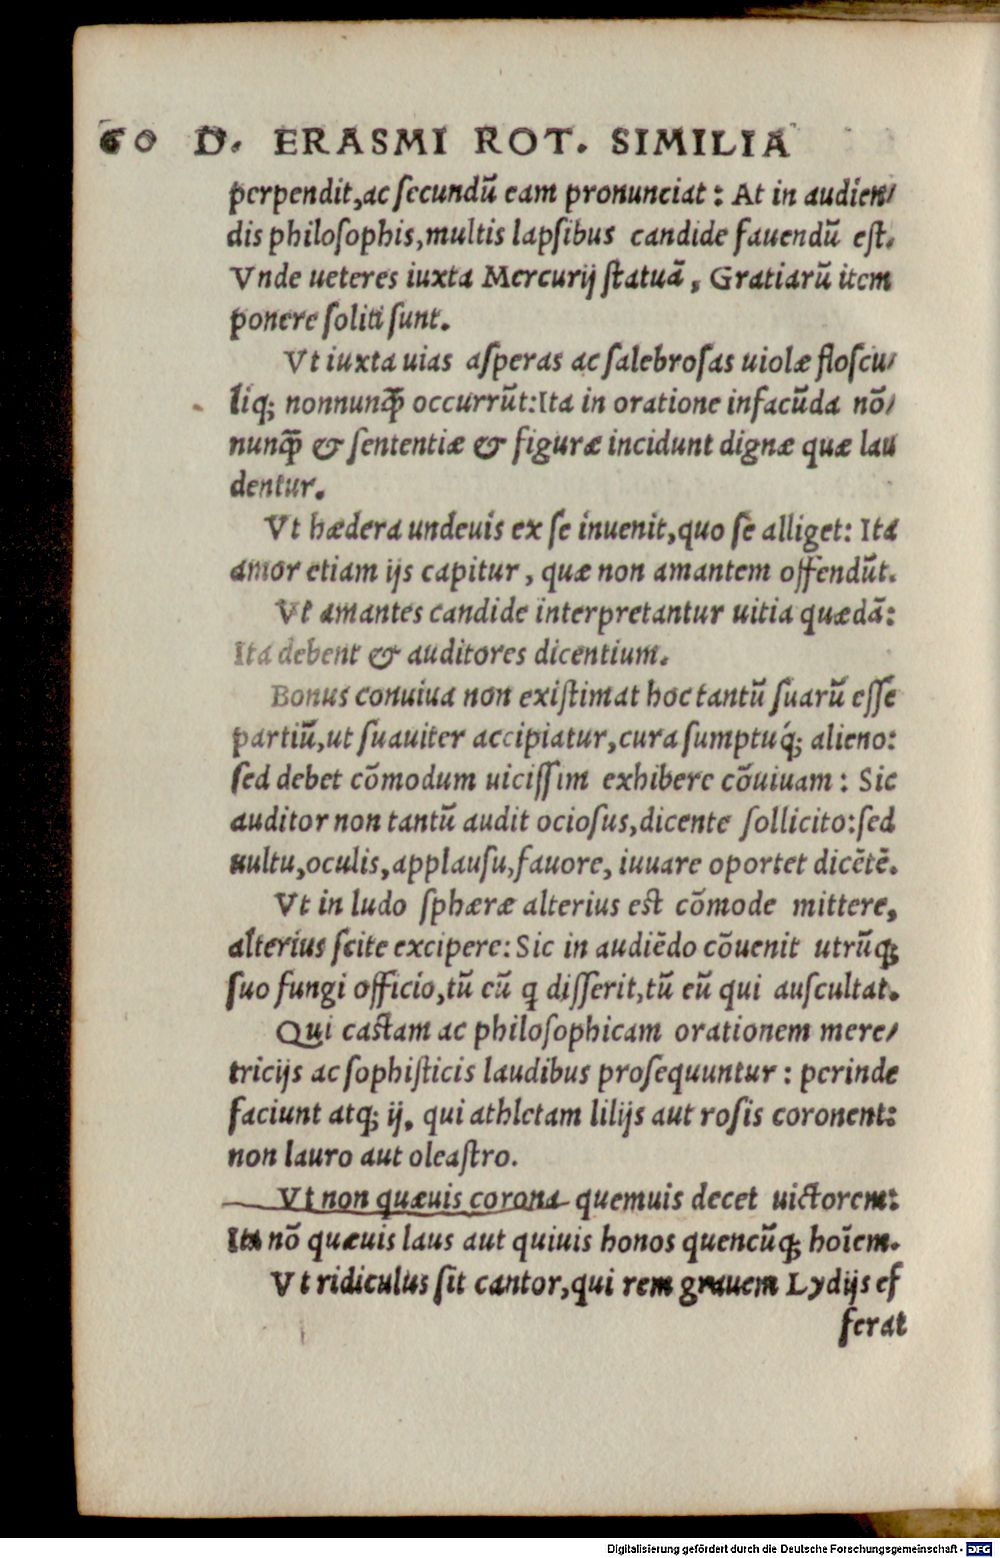 60 D. ERASMI ROT. SIMILIA
perpendit, ac ſecundū eam pronunciat: At in audien/
dis philoſophis, multis lapſibus candide fauendū eſt.
Vnde ueteres iuxta Mercurij ſtatuā, Gratiarū item
ponere ſoliti ſunt.
Vt iuxta uias aſperas ac ſalebroſas uiolæ floſcu/
liq; nonnunq̄ occurrūt: Ita in oratione infacūda nō/
nunq̄ & ſententiæ & figuræ incidunt dignæ quæ lau
dentur.
Vt hædera undeuis ex ſe inuenit, quo ſe alliget: Ita
amor etiam ijs capitur, quæ non amantem offendūt.
Vt amantes candide interpretantur uitia quædā:
Ita debent & auditores dicentium.
Bonus conuiua non exiſtimat hoc tantū ſuarū eſſe
partiū, ut ſuauiter accipiatur, cura ſumptuq́; alieno:
ſed debet cōmodum uiciſſim exhibere cōuiuam: Sic
auditor non tantū audit ocioſus, dicente ſollicito: ſed
uultu, oculis, applauſu, fauore, iuuare oportet dicētē.
Vt in ludo ſphæræ alterius eſt cōmode mittere,
alterius ſcite excipere: Sic in audiēdo cōuenit utrūq;
ſuo fungi officio, tū eū q diſſerit, tū eū qui auſcultat.
Qui caſtam ac philoſophicam orationem mere/
tricijs ac ſophiſticis laudibus proſequuntur: perinde
faciunt atq; ij, qui athletam lilijs aut roſis coronent:
non lauro aut oleaſtro.
Vt non quæuis corona quemuis decet uictorem:
Ita nō quæuis laus aut quiuis honos quencūq; hoīem.
Vt ridiculus ſit cantor, qui rem grauem Lydijs ef
ferat
Digitalisierung gefördert durch die Deutsche Forschungsgemeinschaft - DFG